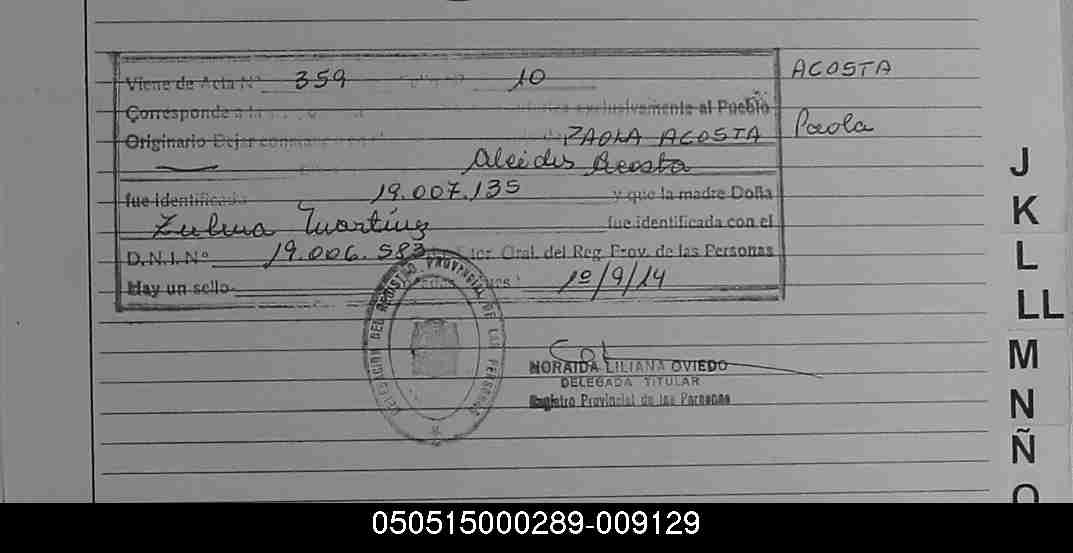 Viene de Acta Nº 359 10
Corresponde a la exclusivamente al Pueblo
Originario Dejar PAOLA ACOSTA
Alcides Acosta
fue Identificado 19.007.135 y que la madre Doña
Zulma Martínez fue identificada con el
D.N.I. Nº 19.006.583 Gral. del Reg. Prov. de las Personas
Hay un sello 10/9/14
ACOSTA
Paola
DELEGACION DEL REGISTRO PROVINCIAL DE LAS PERSONAS
NORAIDA LILIANA OVIEDO
DELEGADA TITULAR
Registro Provincial de las Personas
J
K
L
LL
M
N
Ñ
O
050515000289-009129